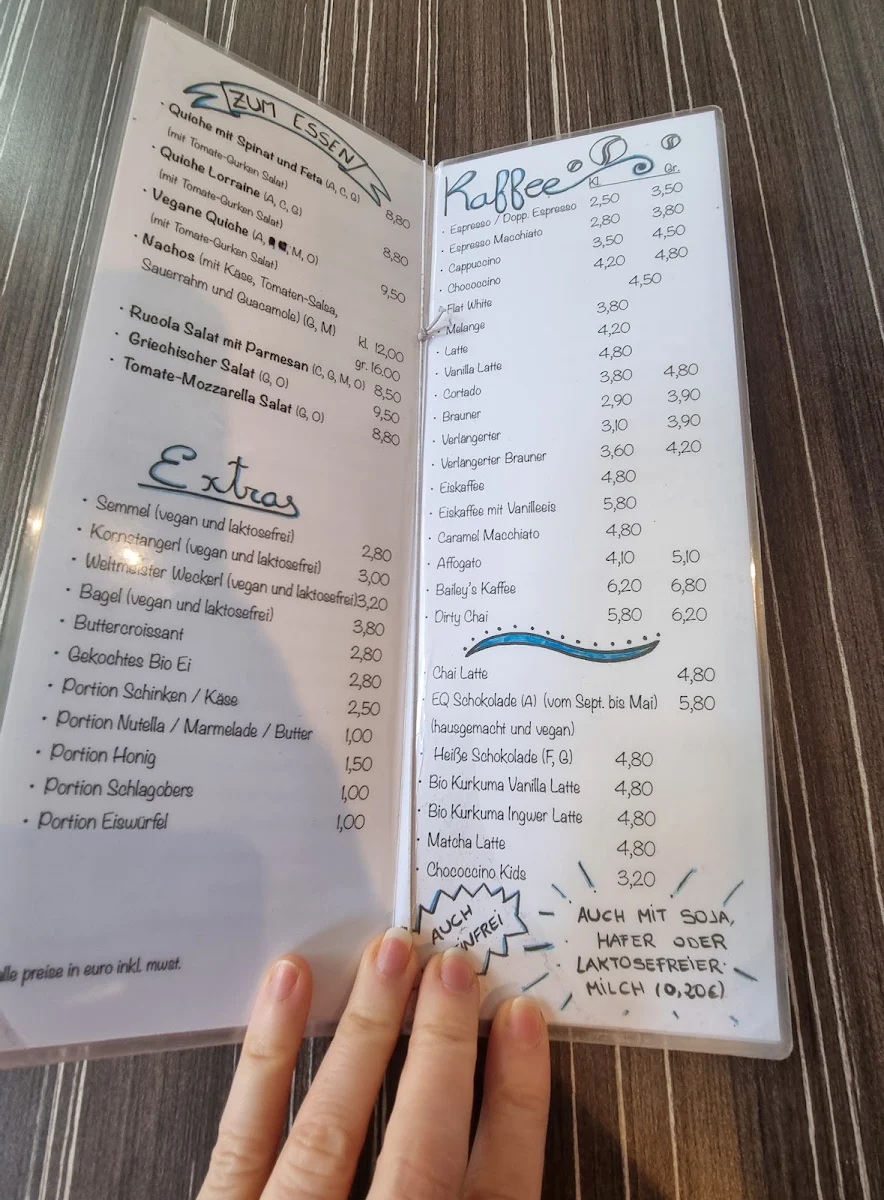 ZUM ESSEN
· Quiche mit Spinat und Feta (A, C, G) 8,80
(mit Tomate-Gurken Salat)
· Quiche Lorraine (A, C, G) 8,80
(mit Tomate-Gurken Salat)
· Vegane Quiche (A, M, O) 9,50
(mit Tomate-Gurken Salat)
· Nachos (mit Käse, Tomaten-Salsa,
Sauerrahm und Guacamole) (G, M) kl. 12,00
gr. 16,00
· Rucola Salat mit Parmesan (C, G, M, O) 8,50
· Griechischer Salat (G, O) 9,50
· Tomate-Mozzarella Salat (G, O) 8,80
Extras
· Semmel (vegan und laktosefrei) 2,80
· Kornstangerl (vegan und laktosefrei) 3,00
· Weltmeister Weckerl (vegan und laktosefrei) 3,20
· Bagel (vegan und laktosefrei) 3,80
· Buttercroissant 2,80
· Gekochtes Bio Ei 2,80
· Portion Schinken / Käse 2,50
· Portion Nutella / Marmelade / Butter 1,00
· Portion Honig 1,50
· Portion Schlagobers 1,00
· Portion Eiswürfel 1,00
alle preise in euro inkl. mwst.
Kaffee
Kl. Gr.
· Espresso / Dopp. Espresso 2,50 3,50
· Espresso Macchiato 2,80 3,80
· Cappuccino 3,50 4,50
· Chococcino 4,20 4,80
· Flat White 4,50
· Melange 3,80
· Latte 4,20
· Vanilla Latte 4,80
· Cortado 3,80 4,80
· Brauner 2,90 3,90
· Verlängerter 3,10 3,90
· Verlängerter Brauner 3,60 4,20
· Eiskaffee 4,80
· Eiskaffee mit Vanilleeis 5,80
· Caramel Macchiato 4,80
· Affogato 4,10 5,10
· Bailey's Kaffee 6,20 6,80
· Dirty Chai 5,80 6,20
· Chai Latte 4,80
· EQ Schokolade (A) (vom Sept. bis Mai) 5,80
(hausgemacht und vegan)
· Heiße Schokolade (F, G) 4,80
· Bio Kurkuma Vanilla Latte 4,80
· Bio Kurkuma Ingwer Latte 4,80
· Matcha Latte 4,80
· Chococcino Kids 3,20
AUCH
AUCH MIT SOJA,
HAFER ODER
LAKTOSEFREIER
MILCH (0,20€)